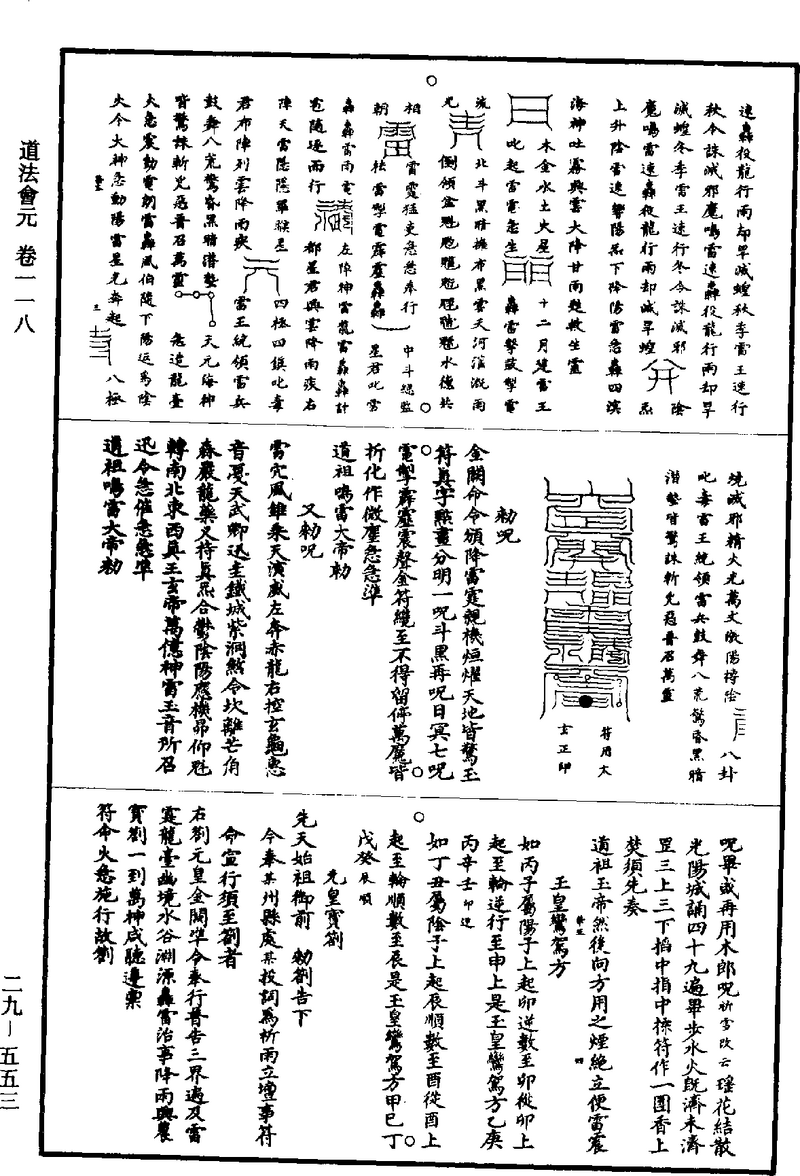 道法會元　卷一一八
速轟役龍行雨却旱滅蝗秋季雷王速行
秋令誅滅邪魔鳴雷速轟役龍行雨却旱
滅蝗冬季雷王速行冬令誅滅邪　陰
魔鳴雷速轟役龍行雨却滅旱蝗　炁
上升陰雷速響陽炁下降陽雷急轟四溟
海神吐霧興雲大降甘雨趕救生靈
木金水土火星　十二月建雷王
叱起雷電急生　轟雷擊鼓掣電
流　北斗黑暗撫布黑雲天河滄溉雨
光　倒傾盆水德共
相　雷霆猛吏急急奉行　中斗總監
朝　祛雷掣電霹靂轟轟　星君叱雷
轟轟雷雨電　左陣神雷龍雷轟轟計
電隨逐雨行　都星君興雲降雨疾右
陣天雷隱隱單猴星　四極四鎮叱毒
君布陣列雲降雨疾　雷王統領雷兵
鼓舞八荒驚昏黑暗潛蟄　天元海神
皆驚誅斬兇惡普召萬靈　急造龍臺
火急震動電朗雷轟風伯隨下陽返為陰
火令大神急動陽雷星光奔起　八極
燒滅邪精火光萬丈激陽摶陰　八卦
叱毒雷王統領雷兵鼓舞八荒驚昏黑暗
潛蟄皆驚誅斬兇惡普召萬靈
符用太
玄正印
勅呪
金闕命令頒降雷霆親機烜燿天地皆驚玉
符真字點畫分明一呪斗黑再呪日冥七呪
電掣霹靂震聲金符纔至不得留停萬魔皆
折化作微塵急急準
道祖鳴雷大帝勅
又勅呪
雷亢風雄乘天演威左奔赤龍右控玄龜惠
音憂天武卿送圭鐵城紫洞然令坎離芒角
森嚴龍藥叉符真炁合鬱陰陽應機昂仰魁
轉南北東西真王玄帝萬億神雷玉音所召
迅令急催急急準
道祖鳴雷大帝勅
呪畢或再用木郎呪祈雪改云瑤花結散
光陽城誦四十九遍畢步水火既濟未濟
罡三上三下掐中指中捺符作一團香上
焚須先奏
道祖玉帝然後向方用之煙絶立便雷震
玉皇鸞駕方
如丙子屬陽子上起卯逆數至卯從卯上
起至輪逆行至申上是玉皇鸞駕方乙庚
丙辛壬卯逆
如丁丑屬陰子上起辰順數至酉從酉上
起至輪順數至辰是玉皇鸞駕方甲巳丁
戊癸辰順
先皇寶劄
先天始祖御前　勅劄告下
今奉某州縣處某投詞為祈雨立壇事符
命宣行須至劄者
右劄元皇金闕準令奉行普告三界遍及雷
霆龍臺幽境水谷淵源轟雷治事降雨興農
寶劄一到萬神咸聽違稟
符命火急施行故劄
二九—五五三